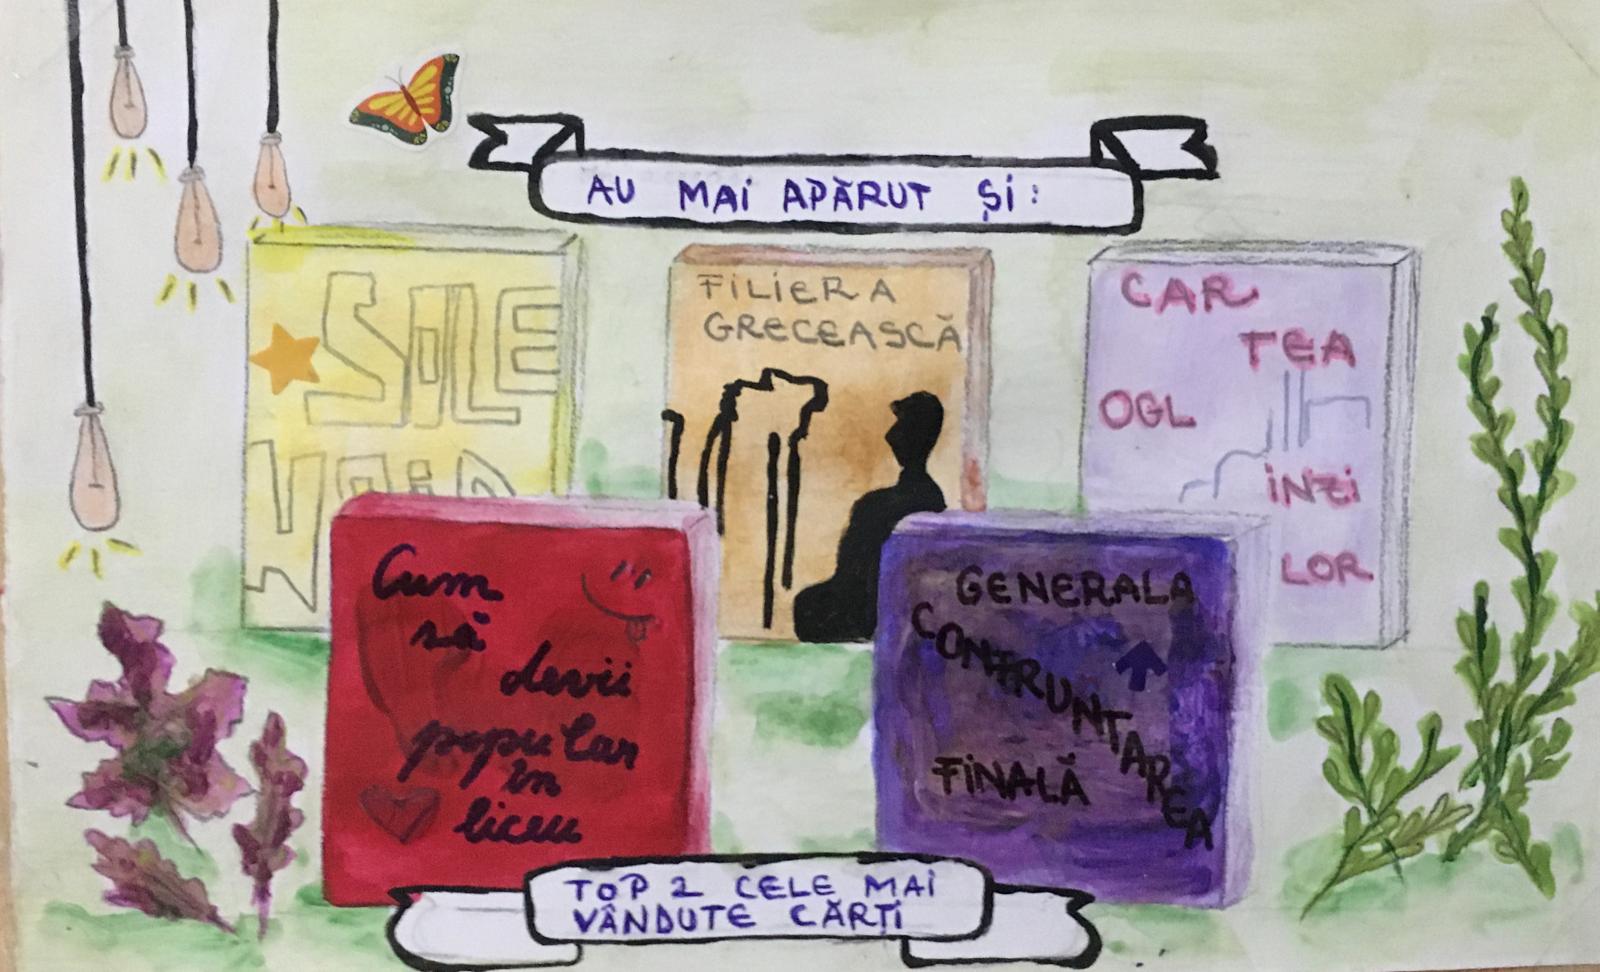 AU MAI APĂRUT ȘI:
SOLE
FILIERA
GRECEASCĂ
CAR
TEA
OGL
INZI
LOR
Cum
să
devii
popular
în
liceu
GENERALA
CONFRUNTAREA
FINALĂ
TOP 2 CELE MAI
VÂNDUTE CĂRȚI